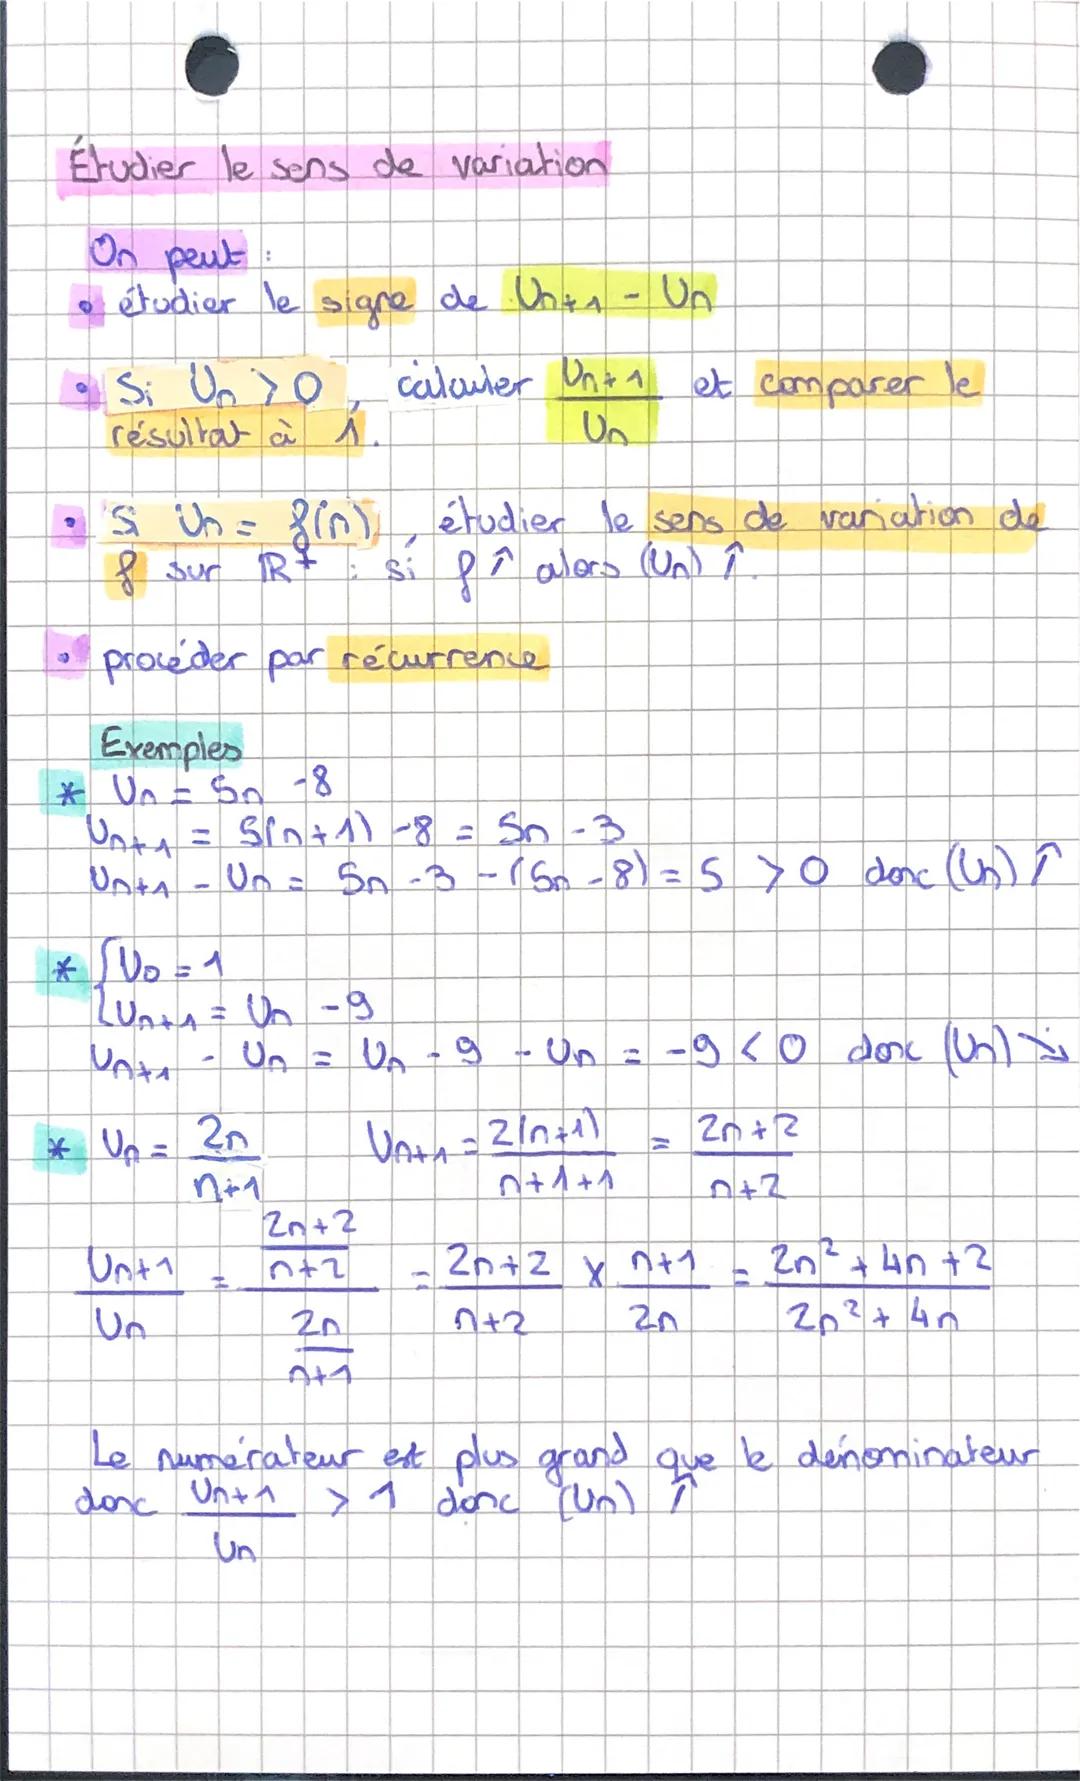 Étudier le sens de variation
On peut :
• étudier le signe de Un+1 - Un
• Si Un > 0, calculer Un+1/Un et comparer le
résultat à 1.
• Si Un = f(n), étudier le sens de variation de
f sur ℝ+ : si f ↑ alors (Un) ↑.
• procéder par récurrence
Exemples
* Un = 5n - 8
Un+1 = 5(n+1) - 8 = 5n - 3
Un+1 - Un = 5n - 3 - (5n - 8) = 5 > 0 donc (Un) ↑
* { U0 = 1
{ Un+1 = Un - 9
Un+1 - Un = Un - 9 - Un = -9 < 0 donc (Un) ↘
* Un = 2n/(n+1) Un+1 = 2(n+1)/(n+1+1) = (2n+2)/(n+2)
Un+1/Un = ((2n+2)/(n+2))/(2n/(n+1)) = (2n+2)/(n+2) × (n+1)/2n = (2n²+4n+2)/(2n²+4n)
Le numérateur est plus grand que le dénominateur
donc Un+1/Un > 1 donc (Un) ↑